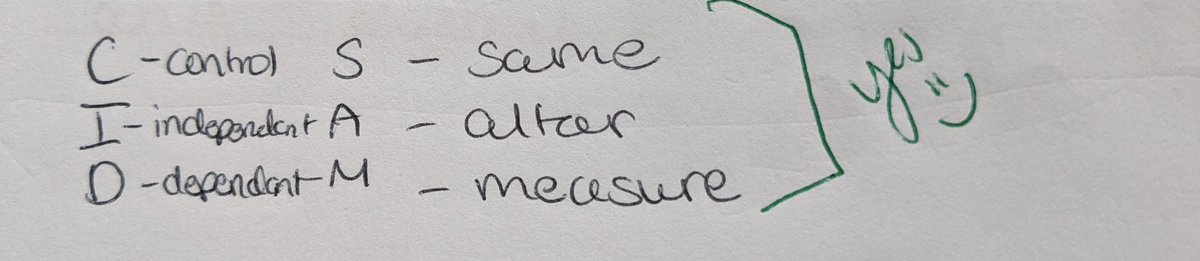 C - control S - same
I - independent A - alter
D - dependent M - measure
yes